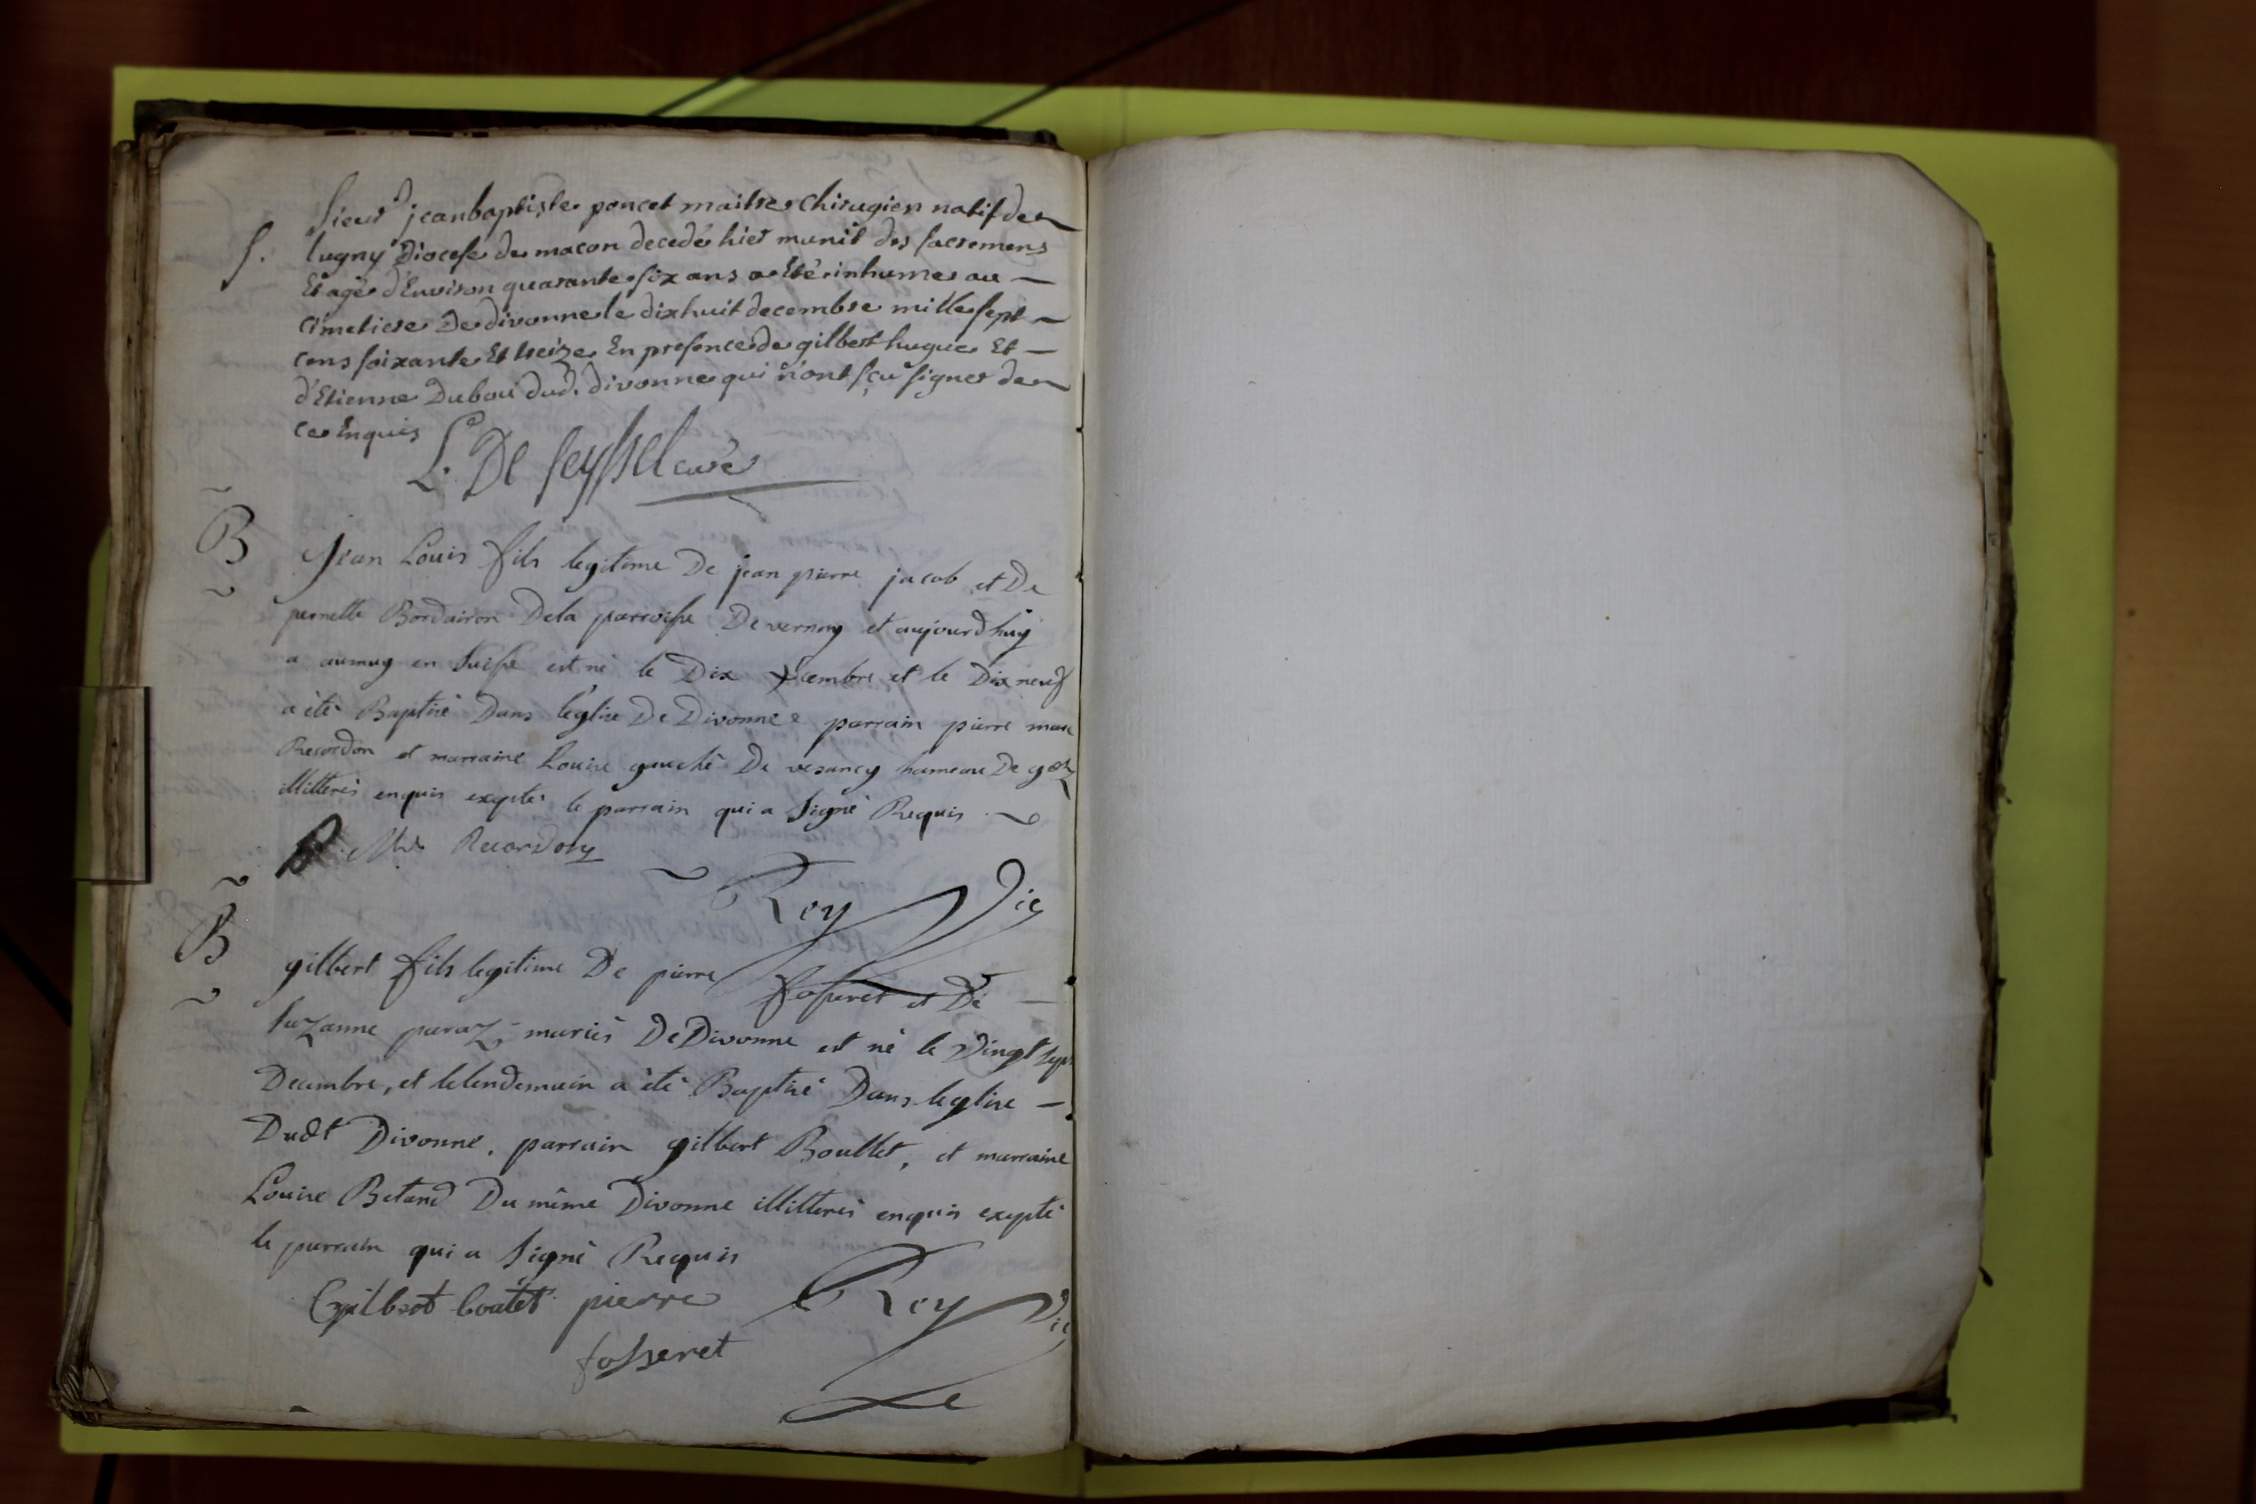 Sieur jeanbaptiste poncet maitre chirugien natif de
S. lugny Diocese de macon decedé hier munit des sacremens
Et agé d'Environ quarante six ans a Eté inhumé au —
cimetiere De divonne le dixhuit decembre mille sept
cens soixante Et treize En presence de gilbert hugue Et —
d'Etienne Dubou dud. divonne qui n'ont sçu signer de
ce Enquis
L. De seyssel curé
B Jean Louis fils legitime De jean pierre jacob et De
pernette Bordairon Dela parroisse De vernay et aujourdhuy
a en suisse est né le Dix Xcembre et le Dix neuf
a été Baptisé Dans l'eglise De Divonne parrain pierre marc
Recordon et marraine Louise gauché De vesancy hameau De gex
illitterés enquis expté le parrain qui a signé Requis
P. Recordon
Rey Vic
B gilbert fils legitime De pierre fosseret et De —
suzanne paraz mariés De Divonne est né le Vingt sept
Decembre, et lelendemain a été Baptisé Dans leglise —
Dudt Divonne, parrain gilbert Bouttet, et marraine
Louise Betand Du même Divonne illitterés enquis expté
le parrain qui a signé Requis
Gilbert boutet pierre Rey Vic
fosseret